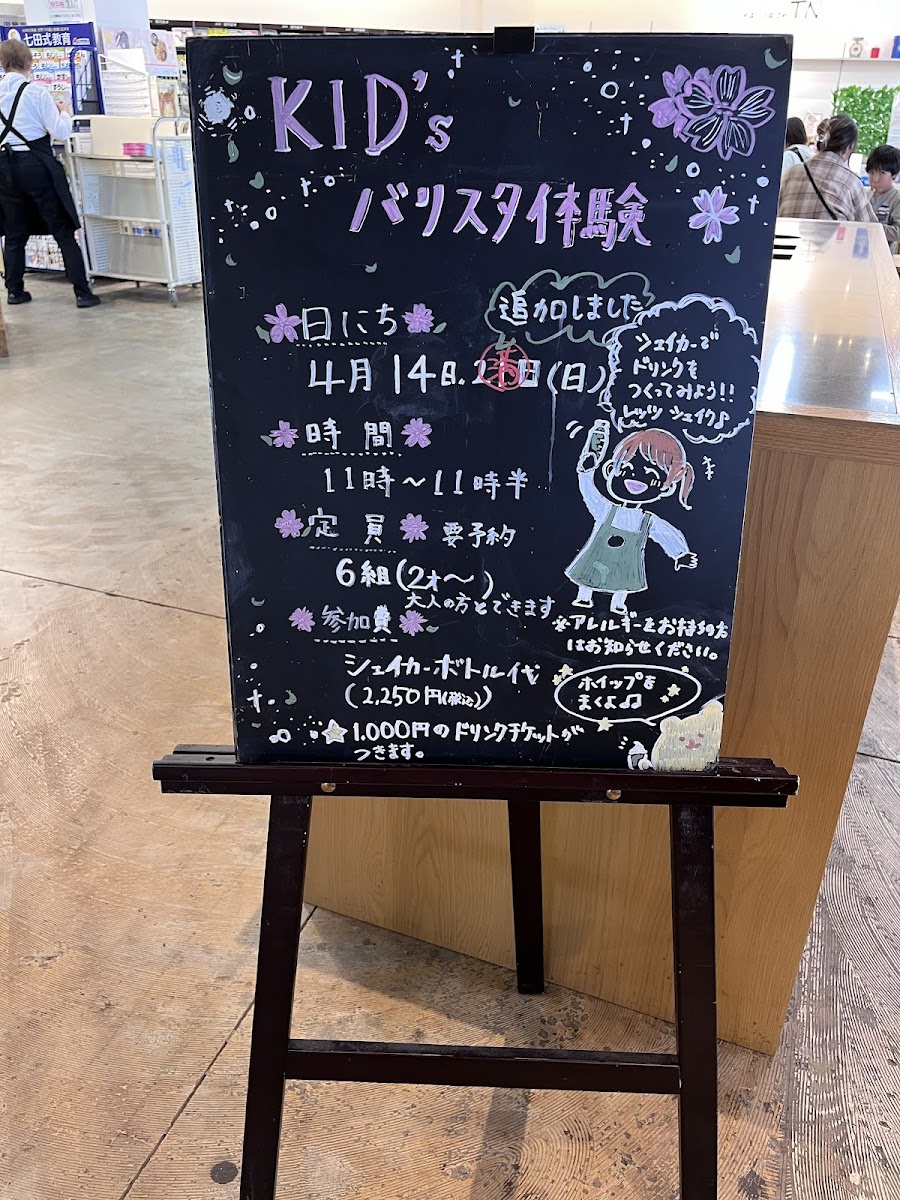 七田式教育
KID's
バリスタ体験
日にち
追加しました
4月 14日. 満 日 (日)
シェイカーで
ドリンクを
つくってみよう!!
レッツ シェイク♪
時間
11時〜11時半
定員 要予約
6組(2才〜)
大人の方とできます
参加費
※アレルギーをお持ちの方
はお知らせください。
シェイカーボトル代
(2,250円(税込))
ホイップを
まくよ♫
☆1,000円のドリンクチケットが
つきます。